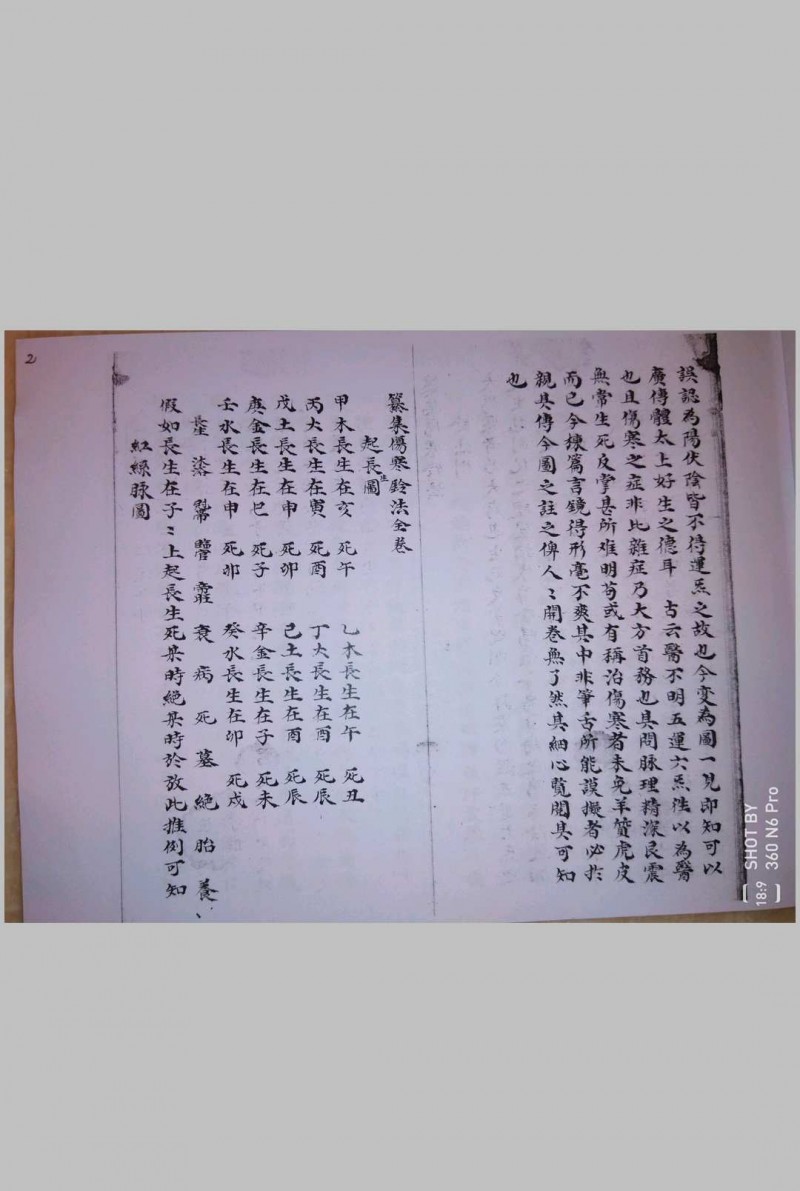 誤認為陽伏陰皆不得運炁之故也今变為圖一見即知可以
廣傳體太上好生之德耳 古云醫不明五運六炁徃以為醫
也且傷寒之症非比雜症乃大方首務也其問脉理精深艮震
無常生死反掌甚所难明苟或有稱治傷寒者未免羊質虎皮
而已今揀篇言鏡得形毫不爽其中非筆舌所能謨擬者必扵
親其傳今圖之註之俾人〻開卷無了然其細心覽閱其可知
也
纂集傷寒鈴法全卷
起長生圖
甲木長生在亥 死午 乙木長生在午 死丑
丙火長生在寅 死酉 丁火長生在酉 死辰
戊土長生在申 死卯 己土長生在酉 死辰
庚金長生在巳 死子 辛金長生在子 死未
壬水長生在申 死卯 癸水長生在卯 死戌
衰 病 死 墓 絶 胎 養、
假如長生在子〻上起長生死某時絕某時於放此推例可知
紅綠脉圖
2
SHOT BY
360 N6 Pro
18:9